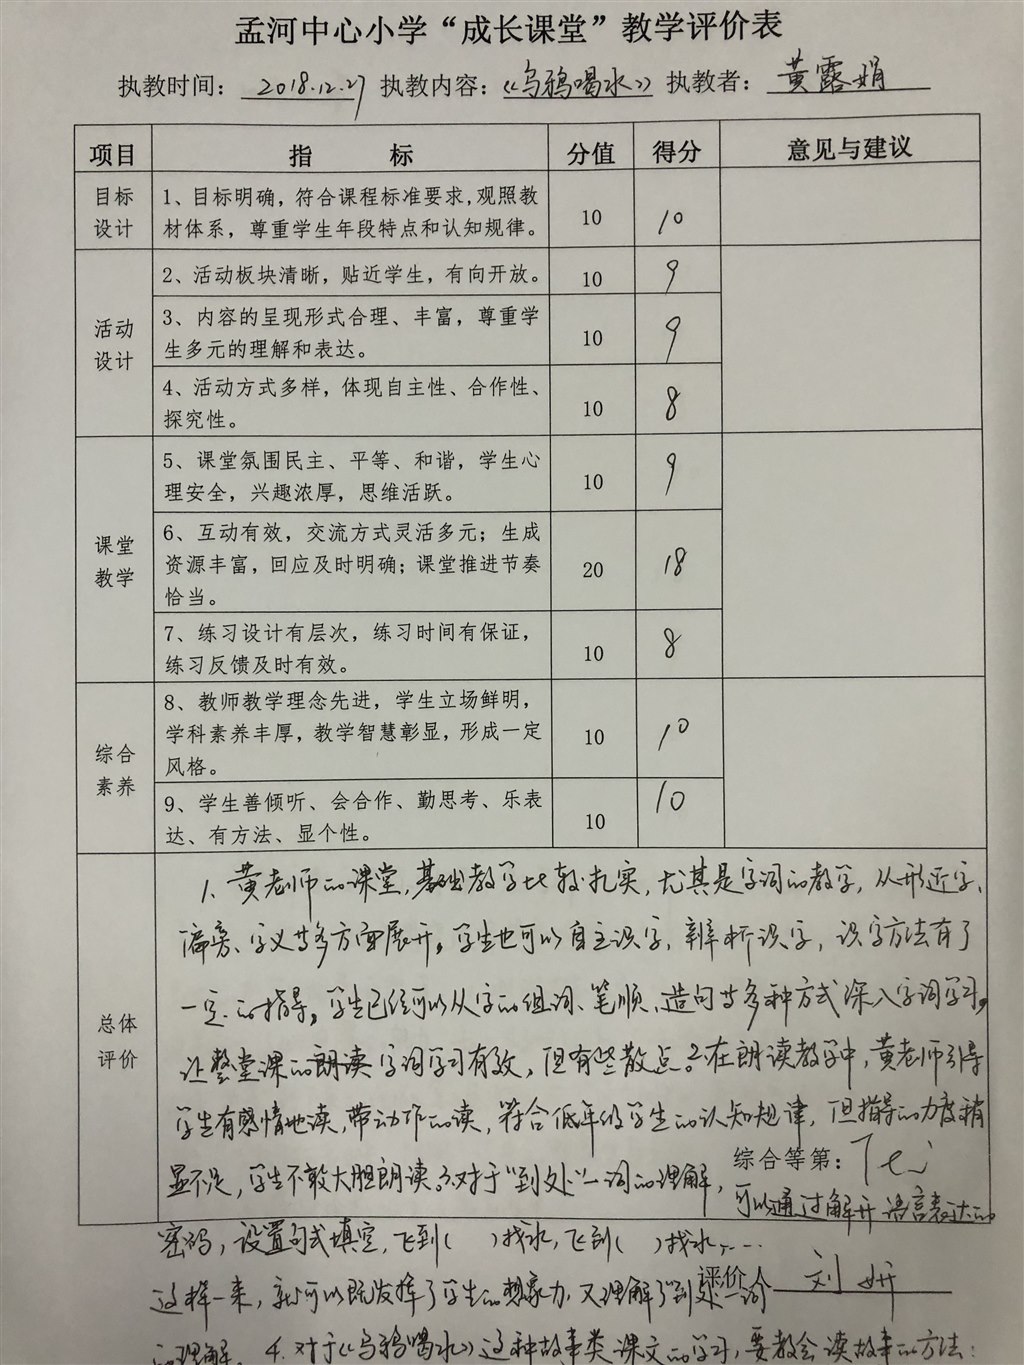 孟河中心小学“成长课堂”教学评价表
执教时间：2018.12.27 执教内容：《乌鸦喝水》 执教者：黄露娟
项目 指 标 分值 得分 意见与建议
目标
设计
1、目标明确，符合课程标准要求，观照教
材体系，尊重学生年段特点和认知规律。
10 10
活动
设计
2、活动板块清晰，贴近学生，有向开放。
10 9
3、内容的呈现形式合理、丰富，尊重学
生多元的理解和表达。
10 9
4、活动方式多样，体现自主性、合作性、
探究性。
10 8
课堂
教学
5、课堂氛围民主、平等、和谐，学生心
理安全，兴趣浓厚，思维活跃。
10 9
6、互动有效，交流方式灵活多元；生成
资源丰富，回应及时明确；课堂推进节奏
恰当。
20 18
7、练习设计有层次，练习时间有保证，
练习反馈及时有效。
10 8
综合
素养
8、教师教学理念先进，学生立场鲜明，
学科素养丰厚，教学智慧彰显，形成一定
风格。
10 10
9、学生善倾听、会合作、勤思考、乐表
达、有方法、显个性。
10 10
总体
评价
1、黄老师的课堂，基础教学比较扎实，尤其是字词的教学，从形近字、
偏旁、字义等多方面展开。学生也可以自主识字，辨析识字，识字方法有了
一定的指导。学生已经可以从字的组词、笔顺、造句等多种方式深入字词学习。
让整堂课的朗读字词学习有效，但有些散点。2.在朗读教学中，黄老师引导
学生有感情地读，带动作的读，符合低年级学生的认知规律，但指导的力度稍
显不足，学生不敢大胆朗读。3.对于“到处”一词的理解，
综合等第：
可以通过解开语言表达的
密码，设置句式填空，飞到（ ）找水，飞到（ ）找水……
这样一来，就可以既发挥了学生的想象力，又理解了“到处”一词
评价人 刘妍
的理解。4.对于《乌鸦喝水》这种故事类课文的学习，要教会读故事的方法：